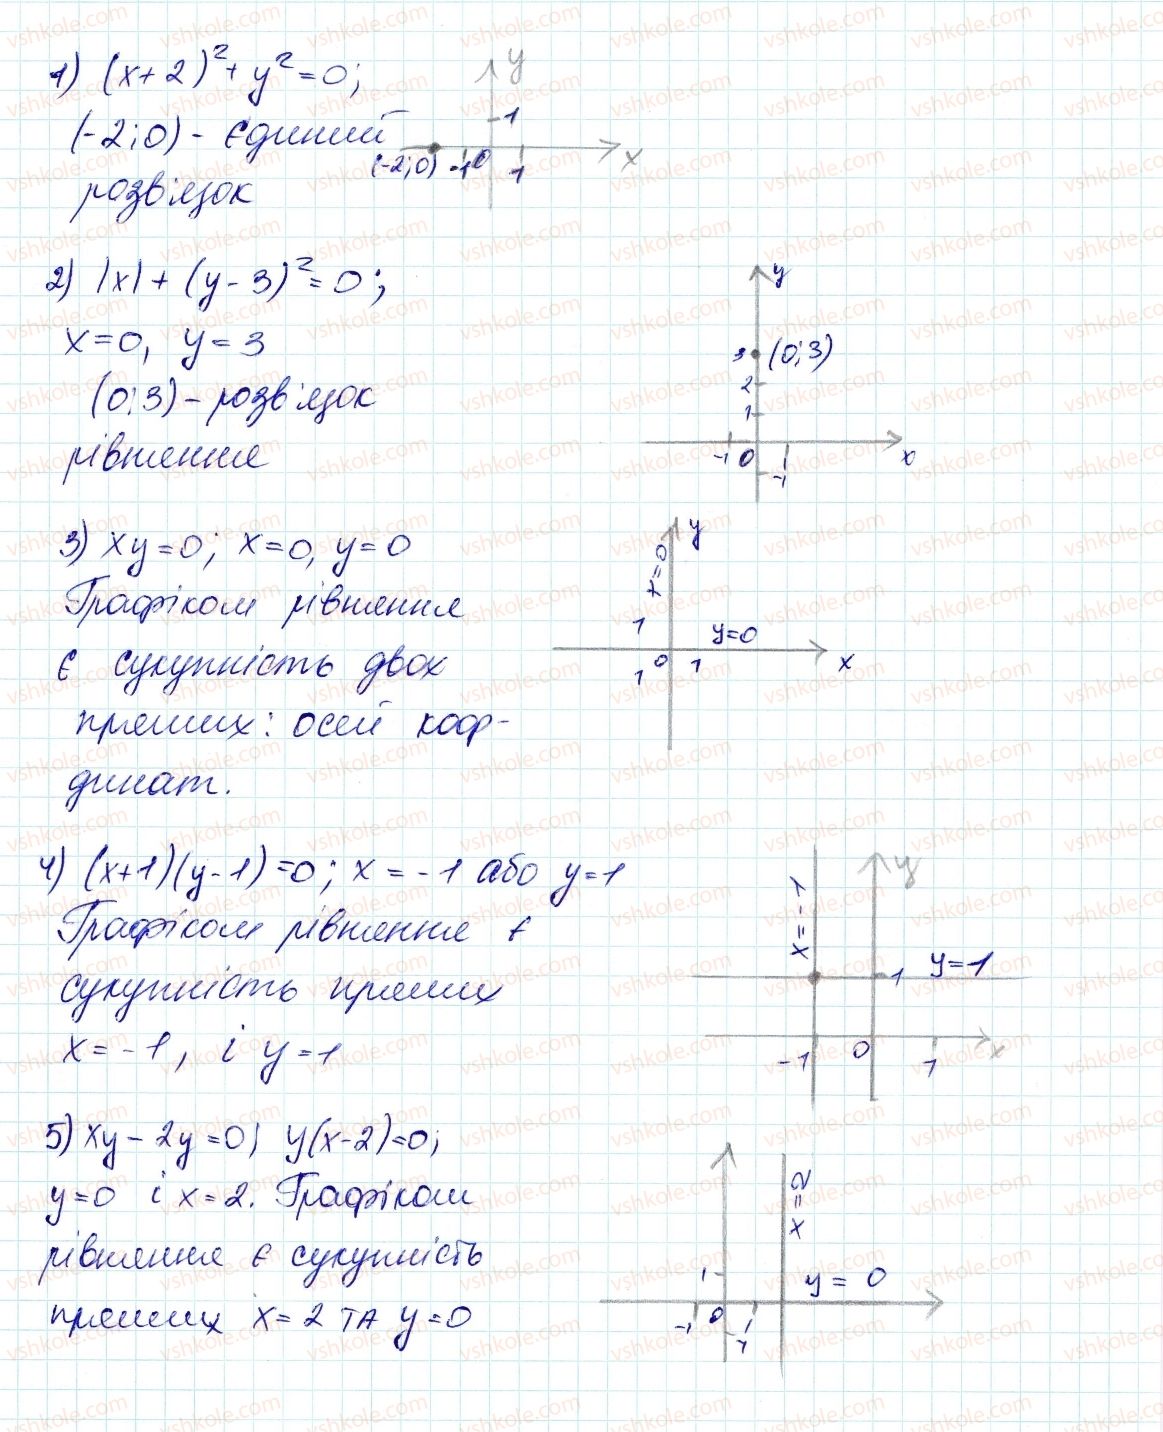 1) (x+2)²+y²=0;
(-2;0) - єдиний
розв'язок
y
1
(-2;0) -1 0 1 x
2) |x| + (y-3)²=0;
x=0, y=3
(0;3) - розв'язок
рівняння
y
3 (0;3)
2
1
-1 0 x
-1
3) xy=0; x=0, y=0
Графіком рівняння
є сукупність двох
прямих: осей коор-
динат.
y
x=0
1
y=0
0 1 x
1
4) (x+1)(y-1)=0; x=-1 або y=1
Графіком рівняння є
сукупність прямих
x=-1, і y=1
y
x=-1
1 y=1
-1 0 1 x
5) xy-2y=0; y(x-2)=0;
y=0 і x=2. Графіком
рівняння є сукупність
прямих x=2 та y=0
x=2
1 y = 0
-1 0
1
vshkole.com